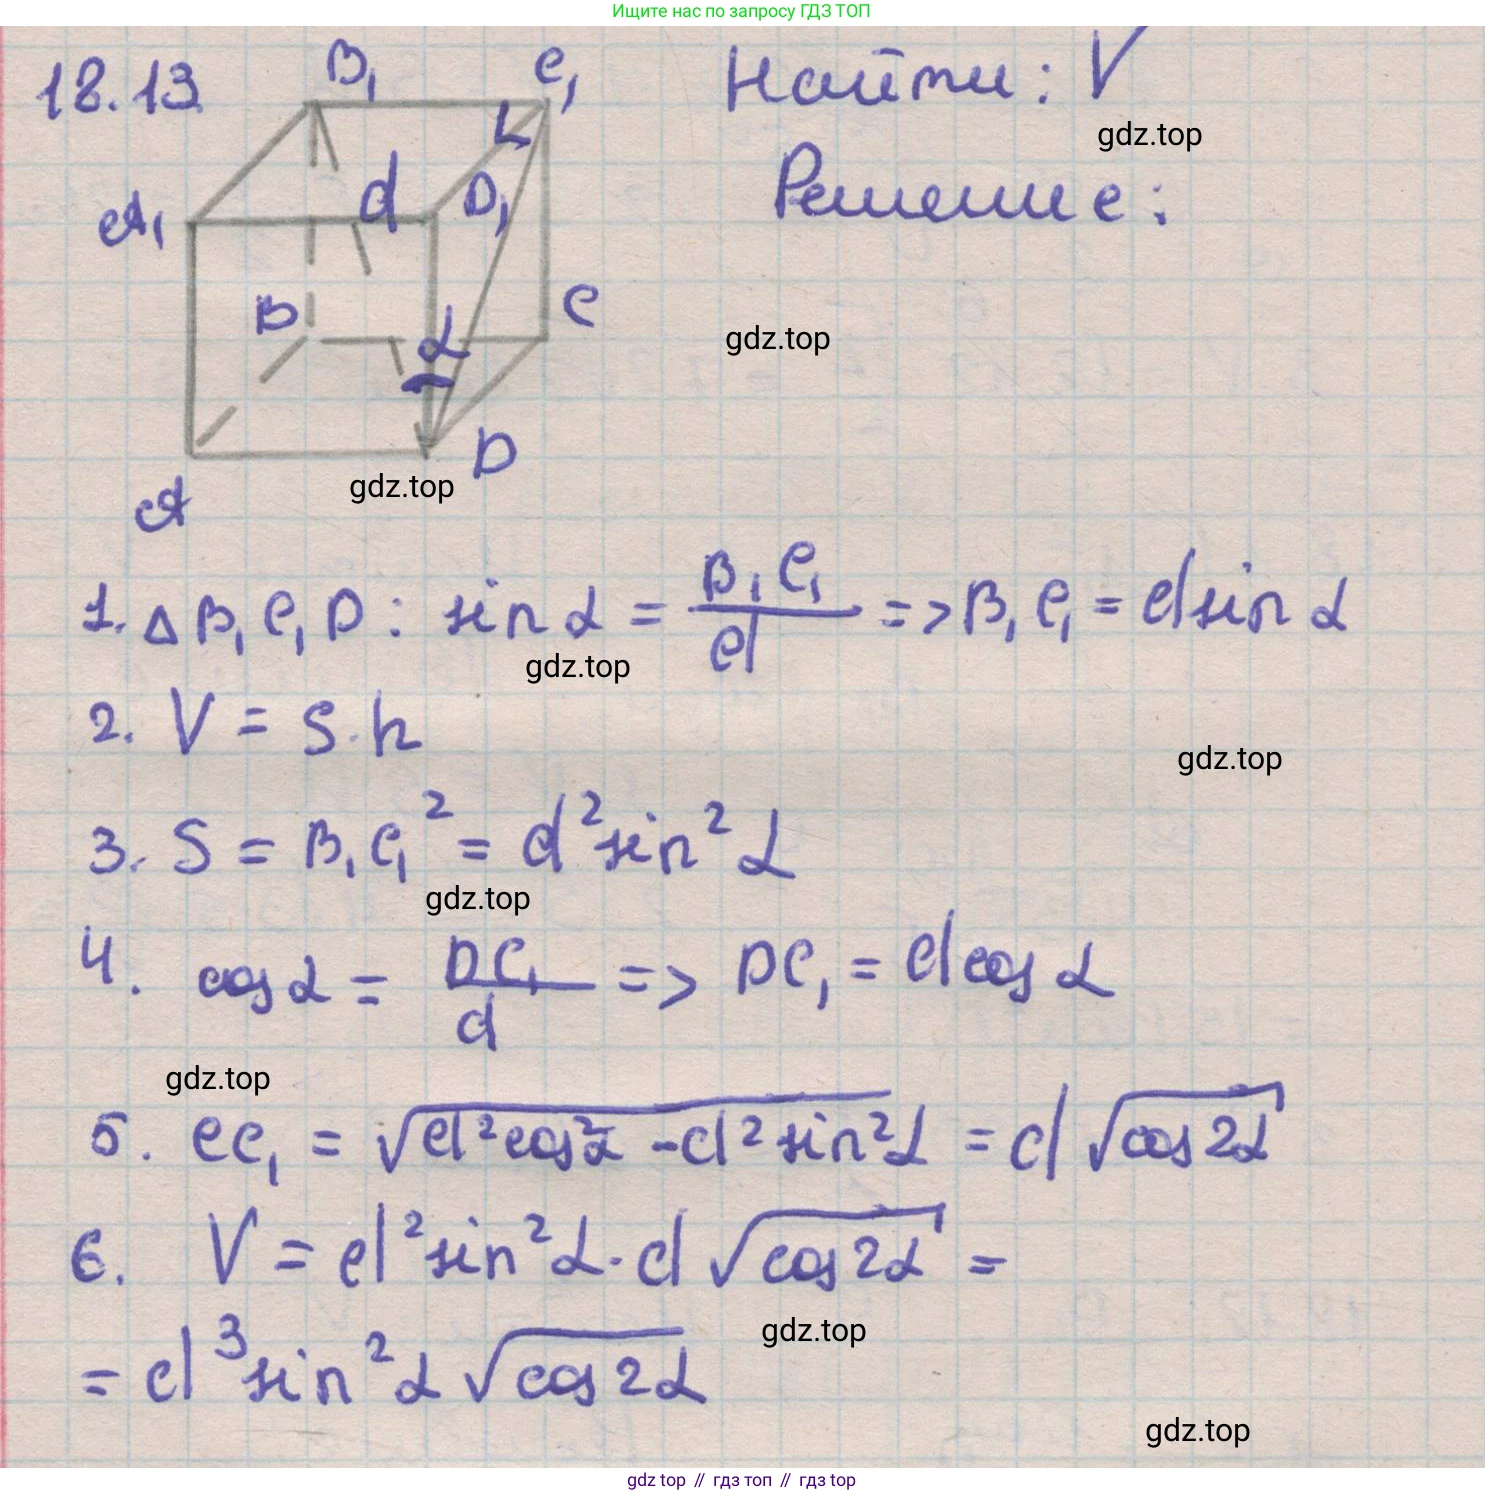 Ищите нас по запросу ГДЗ ТОП
18.13
B₁ C₁
Найти: V
gdz.top
A₁ d D₁
Решение:
B α C
gdz.top
D
gdz.top
A
1. Δ B₁C₁D: sin α = B₁C₁/d => B₁C₁ = d sin α
gdz.top
2. V = S·h
gdz.top
3. S = B₁C₁² = d² sin² α
gdz.top
4. cos α = DC₁/d => DC₁ = d cos α
gdz.top
5. CC₁ = √(d² cos² α - d² sin² α) = d √(cos 2α)
6. V = d² sin² α · d √(cos 2α) =
gdz.top
= d³ sin² α √(cos 2α)
gdz.top
gdz top // гдз топ // гдз top